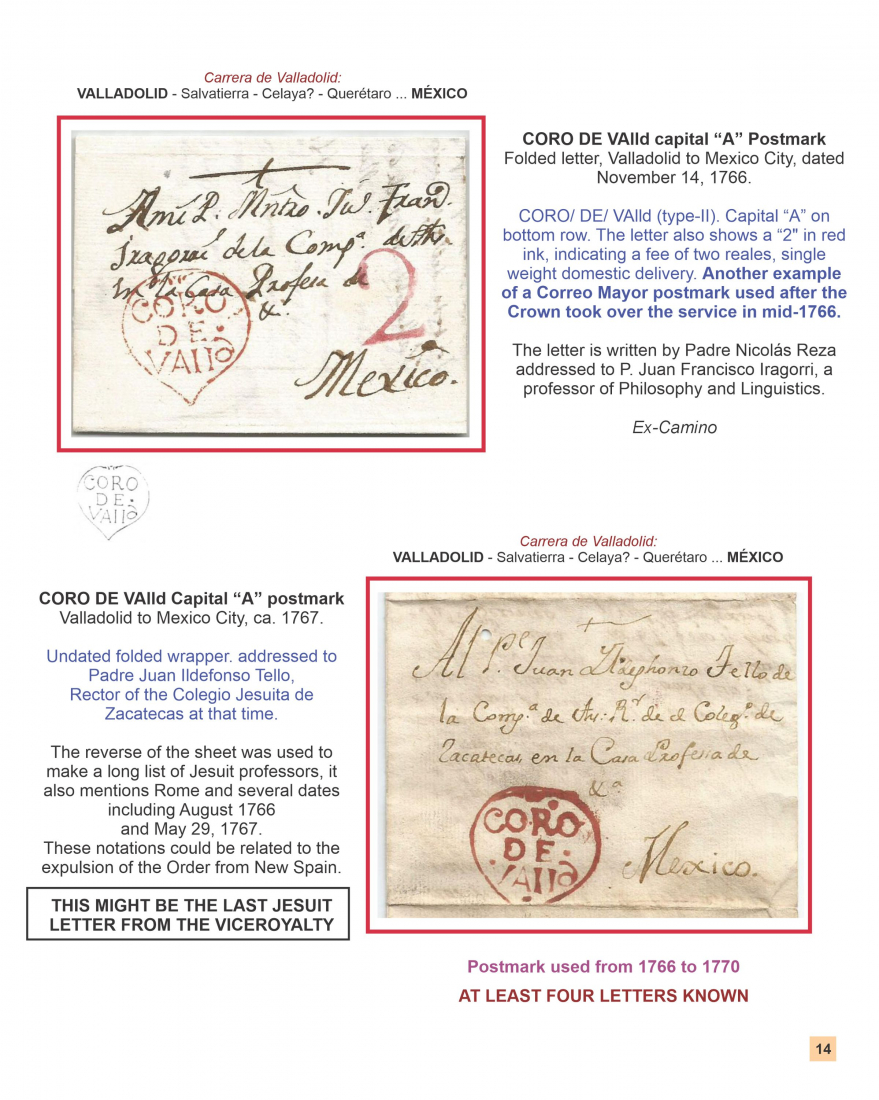 Carrera de Valladolid:
VALLADOLID - Salvatierra - Celaya? - Querétaro ... MÉXICO
Amí P. Mntro. Franco.
de la Compª. de
en la Casa Profesa de
&ª.
Mexico.
2
CORO
DE
VAlld
CORO DE VAlld capital “A” Postmark
Folded letter, Valladolid to Mexico City, dated
November 14, 1766.
CORO/ DE/ VAlld (type-II). Capital “A” on
bottom row. The letter also shows a “2" in red
ink, indicating a fee of two reales, single
weight domestic delivery. Another example
of a Correo Mayor postmark used after the
Crown took over the service in mid-1766.
The letter is written by Padre Nicolás Reza
addressed to P. Juan Francisco Iragorri, a
professor of Philosophy and Linguistics.
Ex-Camino
CORO
DE
VAlld
Carrera de Valladolid:
VALLADOLID - Salvatierra - Celaya? - Querétaro ... MÉXICO
CORO DE VAlld Capital “A” postmark
Valladolid to Mexico City, ca. 1767.
Undated folded wrapper. addressed to
Padre Juan Ildefonso Tello,
Rector of the Colegio Jesuita de
Zacatecas at that time.
The reverse of the sheet was used to
make a long list of Jesuit professors, it
also mentions Rome and several dates
including August 1766
and May 29, 1767.
These notations could be related to the
expulsion of the Order from New Spain.
THIS MIGHT BE THE LAST JESUIT
LETTER FROM THE VICEROYALTY
Al Pe. Juan Ildephonzo Tello de
la Compª de Rr. de el Colegº. de
Zacatecas, en la Casa Profesa de
&ª
Mexico.
CORO
DE
VAlld
Postmark used from 1766 to 1770
AT LEAST FOUR LETTERS KNOWN
14